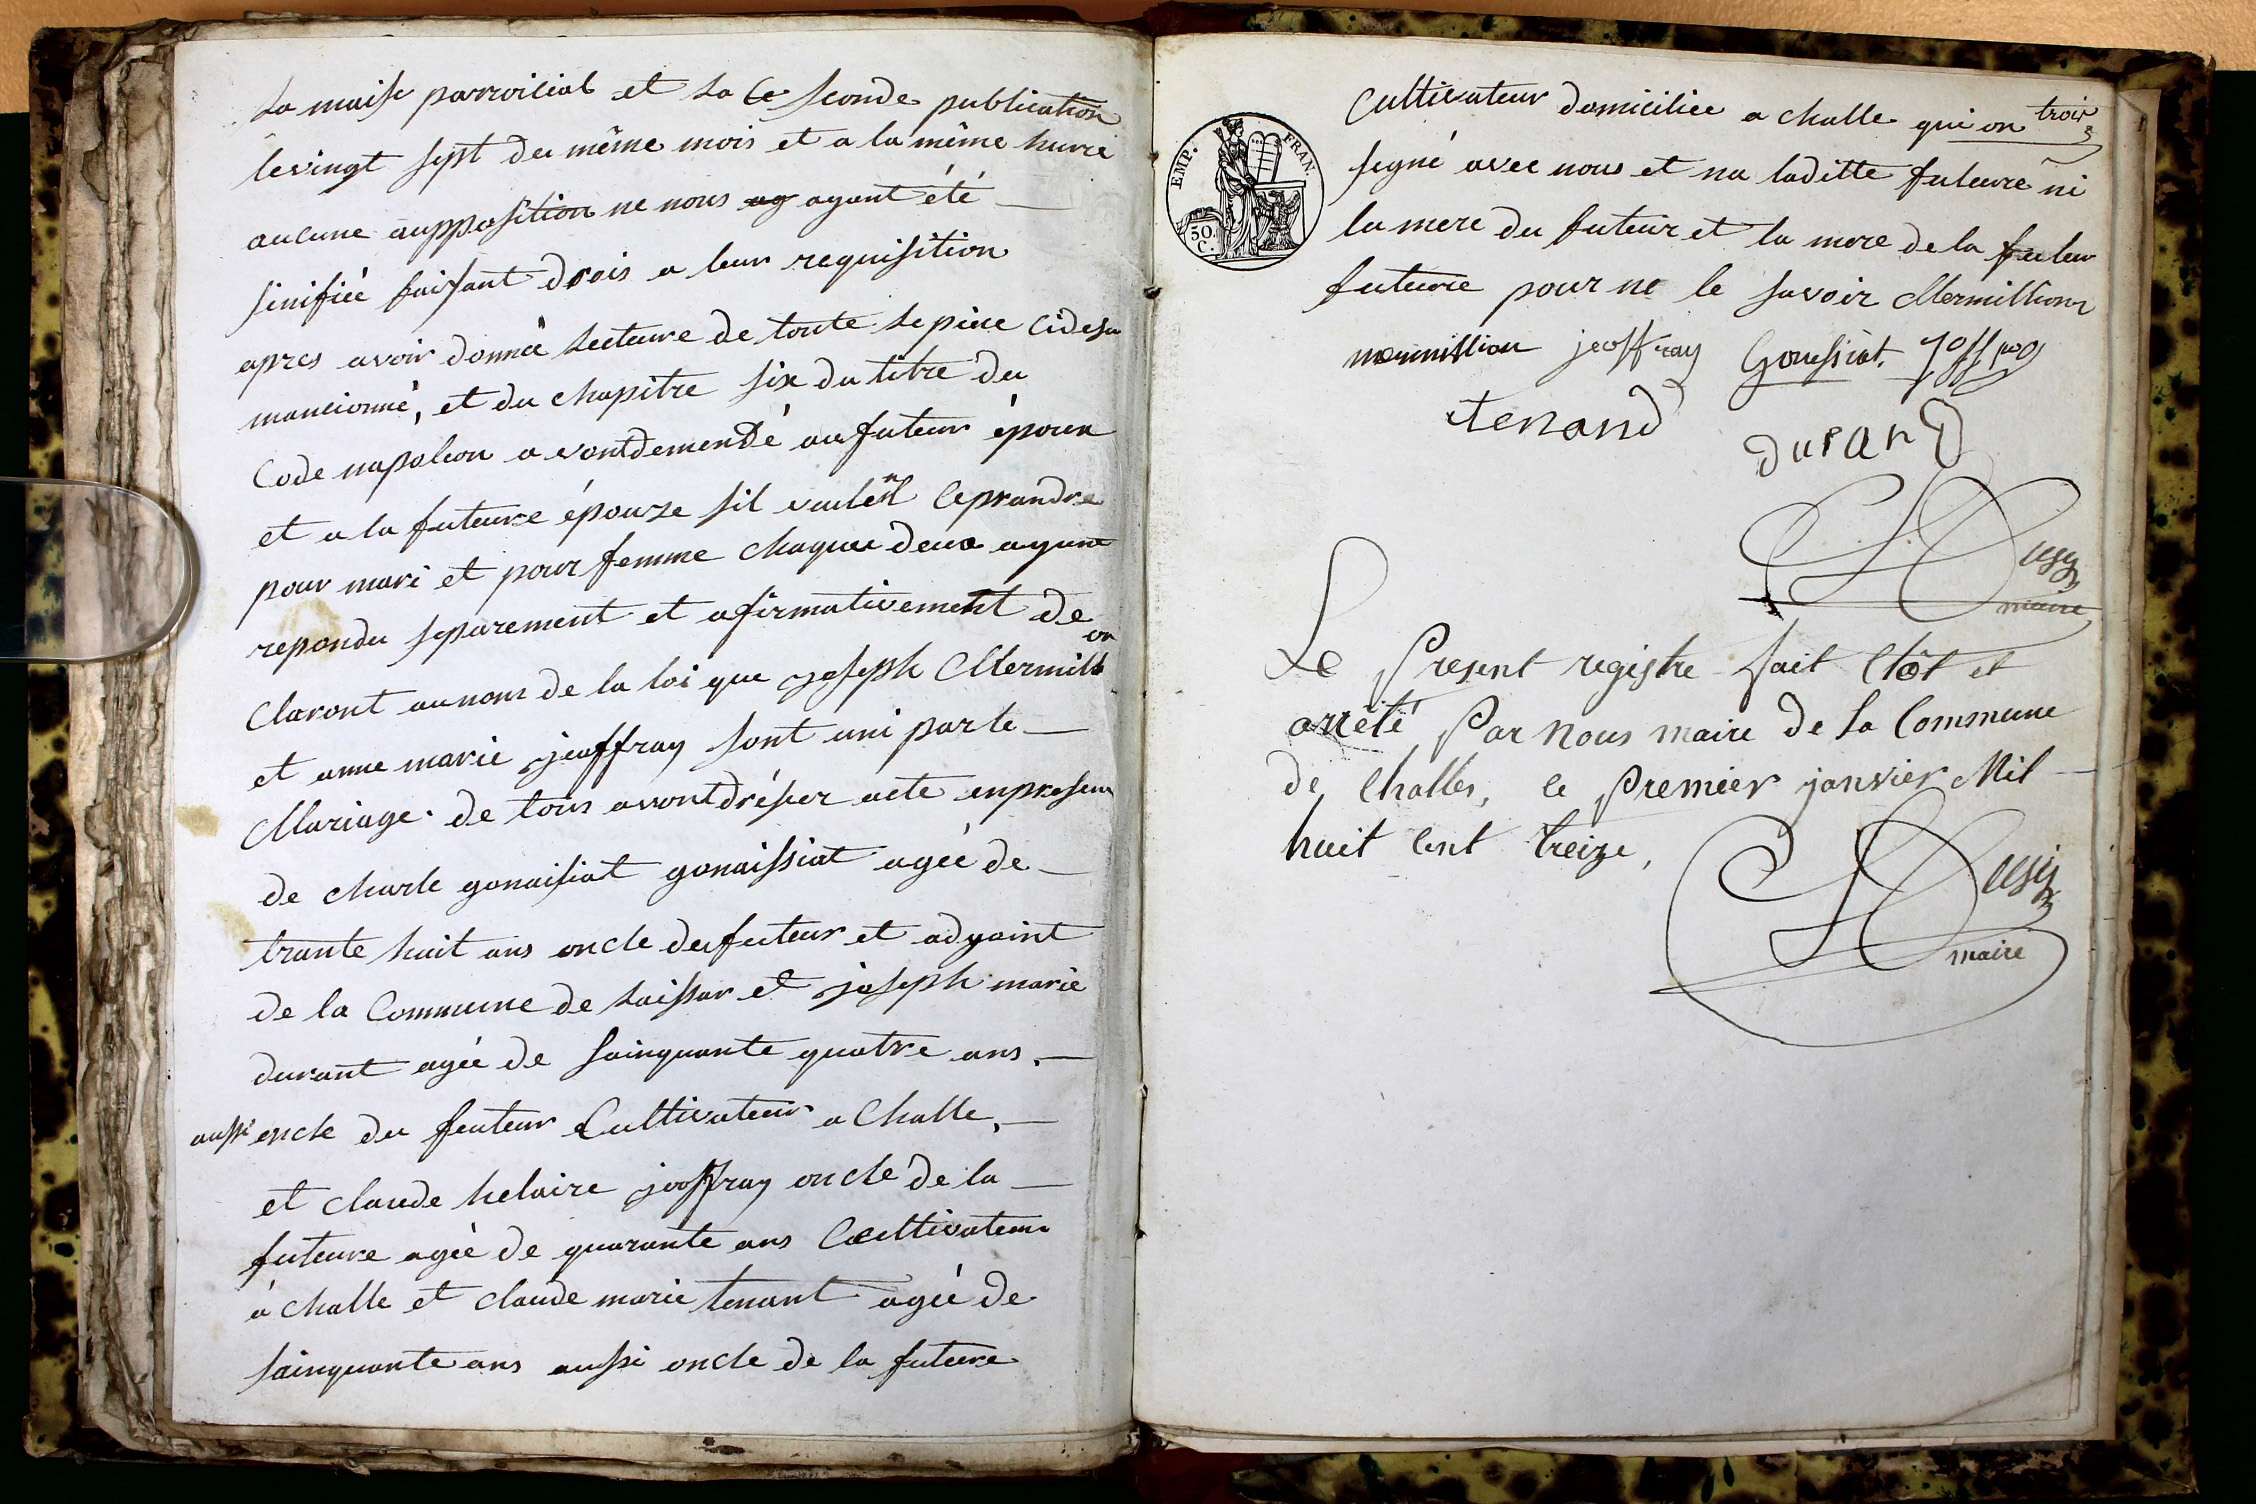 la maise parroicial et la ce seconde publication
le vingt sept du même mois et a la même heure
aucune aupposition ne nous ag ayant été
sinifiée faisant drois a leur requisition
apres avoir donnée lecteure de toute le piece cidesu
mancionné, et du chapitre six du titre du
Code napoleon avont demendé au futeur époux
et a la futeure épouze sil veulent ce prandre
pour mari et pour femme chaque deux ayant
repondu separement et afirmativement de
claront au nom de la loi que joseph Mermillion
et anne marie jeoffray sont uni par le
Mariage. de tous avont drésser acte en presen
de charle gonaisiat gonaissiat agée de
trante huit ans oncle du futeur et adyoint
de la Commune de Laissar et joseph marie
durant agée de sainquante quatre ans.
aussi oncle du feuteur Cultivateur a Challe,
et claude helaire jeoffray oncle de la
futeure agée de quarante ans Ceultivateur
à challe et claude marie tenant agée de
sainquante ans aussi oncle de la futeure
EMP. FRAN.
50. C.
Cultivateur domiciliee a challe qui on trois
signé avec nous et na laditte futeure ni
la mere du futeur et la mere de la futeur
futeure pour ne le savoir Mermillion
mermillion jeoffray Gouissiat. joffray
tenand
durand
maire
Le Present registre fait Clôt et
arrêté Par Nous maire de la Commune
de Challes, le Premier janvier Mil
huit Cent treize,
maire